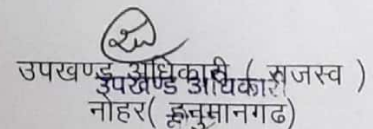 उपखण्ड अधिकारी ( राजस्व )
उपखण्ड अधिकारी
नोहर( हनुमानगढ)